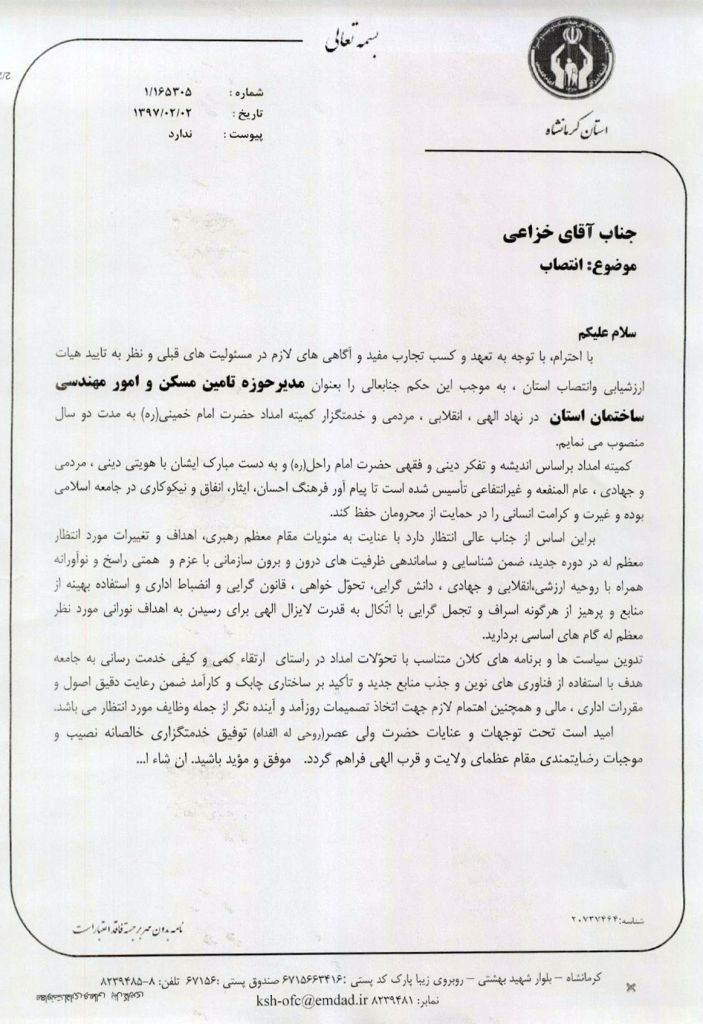 بسمه تعالی
استان کرمانشاه
شماره : ۱/۱۶۵۳۰۵
تاریخ : ۱۳۹۷/۰۲/۰۲
پیوست : ندارد
جناب آقای خزاعی
موضوع: انتصاب
سلام علیکم
با احترام، با توجه به تعهد و کسب تجارب مفید و آگاهی های لازم در مسئولیت های قبلی و نظر به تایید هیات
ارزشیابی وانتصاب استان ، به موجب این حکم جنابعالی را بعنوان مدیرحوزه تامین مسکن و امور مهندسی
ساختمان استان در نهاد الهی ، انقلابی ، مردمی و خدمتگزار کمیته امداد حضرت امام خمینی(ره) به مدت دو سال
منصوب می نمایم.
کمیته امداد براساس اندیشه و تفکر دینی و فقهی حضرت امام راحل(ره) و به دست مبارک ایشان با هویتی دینی ، مردمی
و جهادی ، عام المنفعه و غیرانتفاعی تأسیس شده است تا پیام آور فرهنگ احسان، ایثار، انفاق و نیکوکاری در جامعه اسلامی
بوده و غیرت و کرامت انسانی را در حمایت از محرومان حفظ کند.
براین اساس از جناب عالی انتظار دارد با عنایت به منویات مقام معظم رهبری، اهداف و تغییرات مورد انتظار
معظم له در دوره جدید، ضمن شناسایی و ساماندهی ظرفیت های درون و برون سازمانی با عزم و همتی راسخ و نوآورانه
همراه با روحیه ارزشی،انقلابی و جهادی ، دانش گرایی، تحوّل خواهی ، قانون گرایی و انضباط اداری و استفاده بهینه از
منابع و پرهیز از هرگونه اسراف و تجمل گرایی با اتّکال به قدرت لایزال الهی برای رسیدن به اهداف نورانی مورد نظر
معظم له گام های اساسی بردارید.
تدوین سیاست ها و برنامه های کلان متناسب با تحوّلات امداد در راستای ارتقاء کمی و کیفی خدمت رسانی به جامعه
هدف با استفاده از فناوری های نوین و جذب منابع جدید و تأکید بر ساختاری چابک و کارآمد ضمن رعایت دقیق اصول و
مقررات اداری ، مالی و همچنین اهتمام لازم جهت اتخاذ تصمیمات روزآمد و آینده نگر از جمله وظایف مورد انتظار می باشد.
امید است تحت توجهات و عنایات حضرت ولی عصر(روحی له الفداه) توفیق خدمتگزاری خالصانه نصیب و
موجبات رضایتمندی مقام عظمای ولایت و قرب الهی فراهم گردد. موفق و مؤید باشید. ان شاء ا...
شناسه: ۲۰۷۳۷۴۶۴
نامه بدون مهر برجسته فاقد اعتبار است
کرمانشاه – بلوار شهید بهشتی – روبروی زیبا پارک کد پستی :۶۷۱۵۶۶۳۴۱۶ صندوق پستی :۶۷۱۵۶ تلفن: ۸-۸۲۳۹۴۸۵
نمابر: ۸۲۳۹۴۸۱ ksh-ofc@emdad.ir